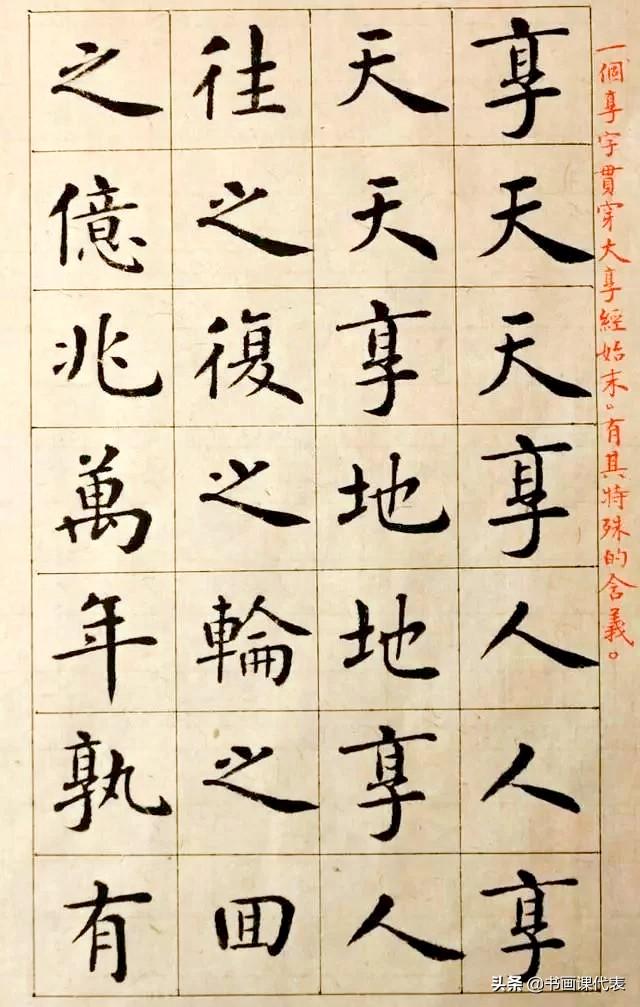 一個享字貫穿大享經始末。有其特殊的含義。
享天天享人人享
天天享地地享人
往之復之輪之囬
之億兆萬年孰有
头条 @书画课代表